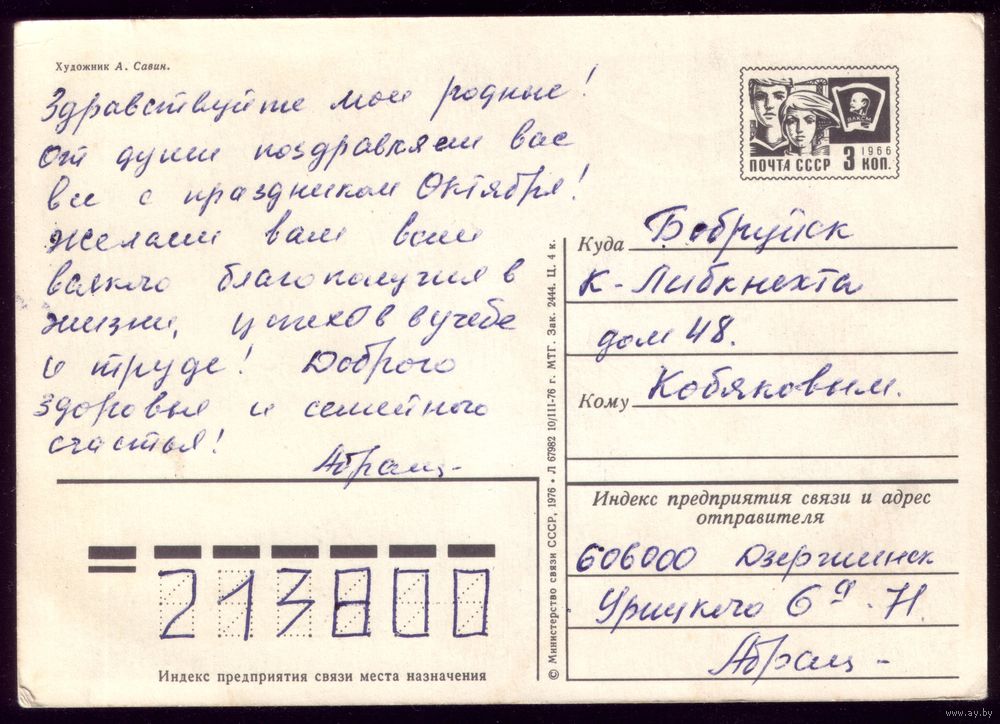 Художник А. Савин.
Здравствуйте мои родные!
От души поздравляем вас
все с праздником Октября!
Желаем вам всем
всякого благополучия в
жизни, успехов в учебе
и труде! Доброго
здоровья и семейного
счастья!
ВЛКСМ
1966
ПОЧТА СССР 3 КОП.
Куда Бобруйск
К-Либкнехта
дом 48.
Кому Кобяковым.
© Министерство связи СССР, 1976 • Л 67982 10/III-76 г. МТГ. Зак. 2444. Ц. 4 к.
Индекс предприятия связи и адрес
отправителя
606000 Дзержинск
Урицкого 6 - 71.
213800
Индекс предприятия связи места назначения
www.ay.by